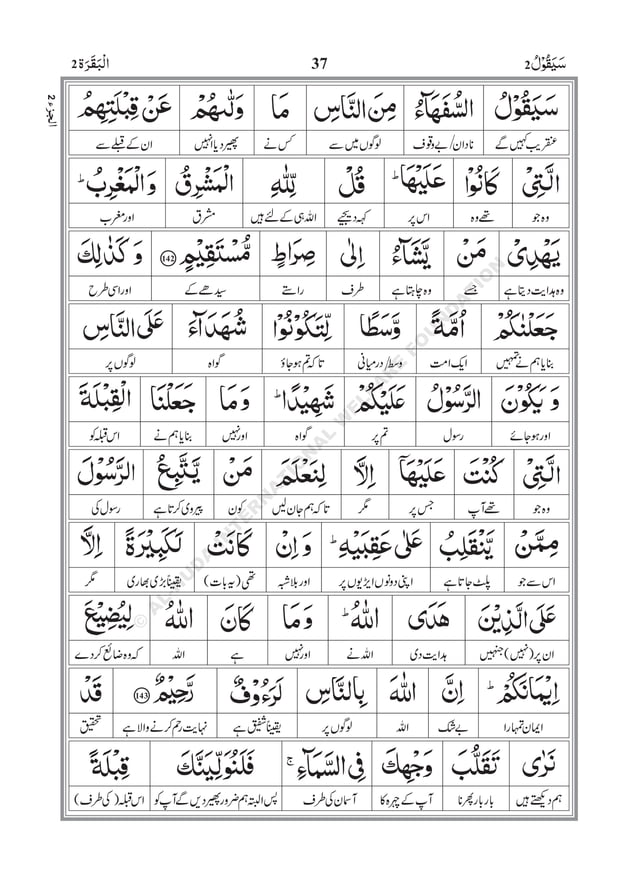 سَيَقُوْلُ 2 37 الْبَقَرَة 2
الجزء 2
سَيَقُوْلُ السُّفَهَآءُ مِنَ النَّاسِ مَا وَلّٰىهُمْ عَنْ قِبْلَتِهِمُ
عنقریب کہیں گے نادان/بے وقوف لوگوں میں سے کس نے پھیر دیا انہیں ان کے قبلے سے
الَّتِيْ كَانُوْا عَلَيْهَا ؕ قُلْ لِّلّٰهِ الْمَشْرِقُ وَالْمَغْرِبُ ؕ
وہ جو تھے وہ اس پر کہہ دیجیے اللہ ہی کے لئے ہیں مشرق اور مغرب
يَهْدِيْ مَنْ يَّشَآءُ اِلٰى صِرَاطٍ مُّسْتَقِيْمٍ 142 وَ كَذٰلِكَ
وہ ہدایت دیتا ہے جسے وہ چاہتا ہے طرف راستے سیدھے کے اور اسی طرح
جَعَلْنٰكُمْ اُمَّةً وَّسَطًا لِّتَكُوْنُوْا شُهَدَآءَ عَلَى النَّاسِ
بنایا ہم نے تمہیں ایک امت وسط/درمیانی تاکہ تم ہو جاؤ گواہ لوگوں پر
وَ يَكُوْنَ الرَّسُوْلُ عَلَيْكُمْ شَهِيْدًا ؕ وَمَا جَعَلْنَا الْقِبْلَةَ
اور ہو جائے رسول تم پر گواہ اور نہیں بنایا ہم نے اس قبلہ کو
الَّتِيْ كُنْتَ عَلَيْهَآ اِلَّا لِنَعْلَمَ مَنْ يَّتَّبِعُ الرَّسُوْلَ
وہ جو تھے آپ جس پر مگر تاکہ ہم جان لیں کون پیروی کرتا ہے رسول کی
مِمَّنْ يَّنْقَلِبُ عَلٰى عَقِبَيْهِ ؕ وَاِنْ كَانَتْ لَكَبِيْرَةً اِلَّا
اس سے جو پلٹ جاتا ہے اپنی دونوں ایڑیوں پر اور بلاشبہ تھی (یہ بات) یقیناً بڑی بھاری مگر
عَلَى الَّذِيْنَ هَدَى اللّٰهُ ؕ وَمَا كَانَ اللّٰهُ لِيُضِيْعَ
ان پر (نہیں) جنہیں ہدایت دی اللہ نے اور نہیں ہے اللہ کہ وہ ضائع کر دے
اِيْمَانَكُمْ ؕ اِنَّ اللّٰهَ بِالنَّاسِ لَرَءُوْفٌ رَّحِيْمٌ 143 قَدْ
ایمان تمہارا بے شک اللہ لوگوں پر یقیناً شفیق ہے نہایت رحم کرنے والا ہے تحقیق
نَرٰى تَقَلُّبَ وَجْهِكَ فِي السَّمَآءِ ۚ فَلَنُوَلِّيَنَّكَ قِبْلَةً
ہم دیکھتے ہیں بار بار پھرنا آپ کے چہرہ کا آسمان کی طرف پس البتہ ہم ضرور پھیر دیں گے آپ کو اس قبلہ (کی طرف)
© AL-HUDA INTERNATIONAL WELFARE FOUNDATION